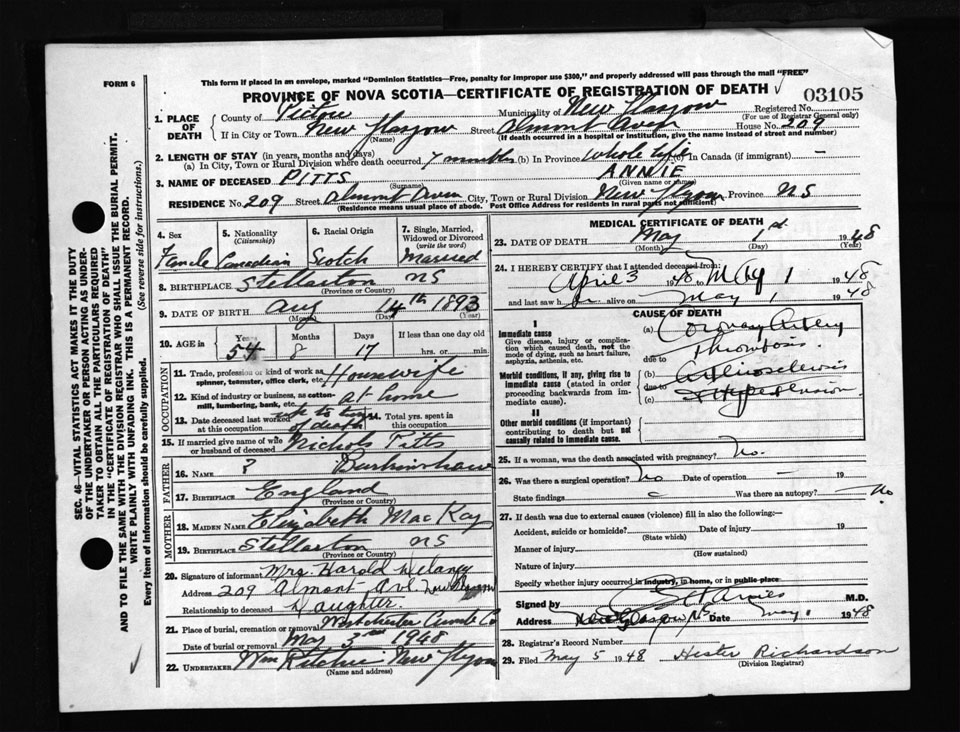 FORM 6
This form if placed in an envelope, marked "Dominion Statistics—Free, penalty for improper use $300," and properly addressed will pass through the mail "FREE"
PROVINCE OF NOVA SCOTIA—CERTIFICATE OF REGISTRATION OF DEATH
03105
1. PLACE OF DEATH
County of Pictou Municipality of New Glasgow Registered No.
(For use of Registrar General only)
If in City or Town New Glasgow Street Almont Aven House No. 209
(Name) (If death occurred in a hospital or institution, give the name instead of street and number)
2. LENGTH OF STAY (in years, months and days)
(a) In City, Town or Rural Division where death occurred 7 months (b) In Province Whole Life (c) In Canada (if immigrant) —
3. NAME OF DECEASED PITTS ANNIE
(Surname) (Given name or names)
RESIDENCE No. 209 Street Almont Aven City, Town or Rural Division New Glasgow Province NS
(Residence means usual place of abode. Post Office Address for residents in rural parts not sufficient)
SEC. 46—VITAL STATISTICS ACT MAKES IT THE DUTY
OF THE UNDERTAKER OR PERSON ACTING AS UNDER-
TAKER TO OBTAIN ALL THE PARTICULARS REQUIRED
IN THE "CERTIFICATE OF REGISTRATION OF DEATH"
AND TO FILE THE SAME WITH THE DIVISION REGISTRAR WHO SHALL ISSUE THE BURIAL PERMIT.
WRITE PLAINLY WITH UNFADING INK. THIS IS A PERMANENT RECORD.
Every item of information should be carefully supplied. (See reverse side for instructions.)
4. Sex
Female
5. Nationality
(Citizenship)
Canadian
6. Racial Origin
Scotch
7. Single, Married, Widowed or Divorced
(write the word)
Married
8. BIRTHPLACE Stellarton NS
(Province or Country)
9. DATE OF BIRTH Aug 14th 1893
(Month) (Day) (Year)
10. AGE in Years Months Days If less than one day old
54 8 17 hrs. or min.
OCCUPATION
11. Trade, profession or kind of work as spinner, teamster, office clerk, etc. Housewife
12. Kind of industry or business, as cotton-mill, lumbering, bank, etc. at home
13. Date deceased last worked at this occupation up to time of death Total yrs. spent in this occupation
15. If married give name of wife or husband of deceased Nichols Pitts
FATHER
16. NAME ?
17. BIRTHPLACE England
(Province or Country)
MOTHER
18. MAIDEN NAME Elizabeth MacKay
19. BIRTHPLACE Stellarton NS
(Province or Country)
20. Signature of informant Mrs. Harold
Address 209 Almont Ave. New Glasgow
Relationship to deceased Daughter.
21. Place of burial, cremation or removal Westchester Cumb Co
Date of burial or removal May 3rd 1948
22. UNDERTAKER Wm Ritchie New Glasgow
(Name and address)
MEDICAL CERTIFICATE OF DEATH
23. DATE OF DEATH May 1st 1948
(Month) (Day) (Year)
24. I HEREBY CERTIFY that I attended deceased from:
April 3 1948 to May 1 1948
and last saw h er alive on May 1 1948
CAUSE OF DEATH
I
Immediate cause
Give disease, injury or complication which caused death, not the mode of dying, such as heart failure, asphyxia, asthenia, etc.
(a) Coronary Artery
Thrombosis.
due to
Morbid conditions, if any, giving rise to immediate cause (stated in order proceeding backwards from immediate cause).
(b) Arteriosclerosis
due to
(c) & Hypertension
II
Other morbid conditions (if important) contributing to death but not causally related to immediate cause.
25. If a woman, was the death associated with pregnancy? No.
26. Was there a surgical operation? No Date of operation — 19
State findings Was there an autopsy? No
27. If death was due to external causes (violence) fill in also the following:—
Accident, suicide or homicide? Date of injury 19
(State which)
Manner of injury
(How sustained)
Nature of injury
Specify whether injury occurred in industry, in home, or in public place
Signed by M.D.
Address New Glasgow N.S. Date May 1 1948
28. Registrar's Record Number
29. Filed May 5 1948 Hester Richardson
(Division Registrar)